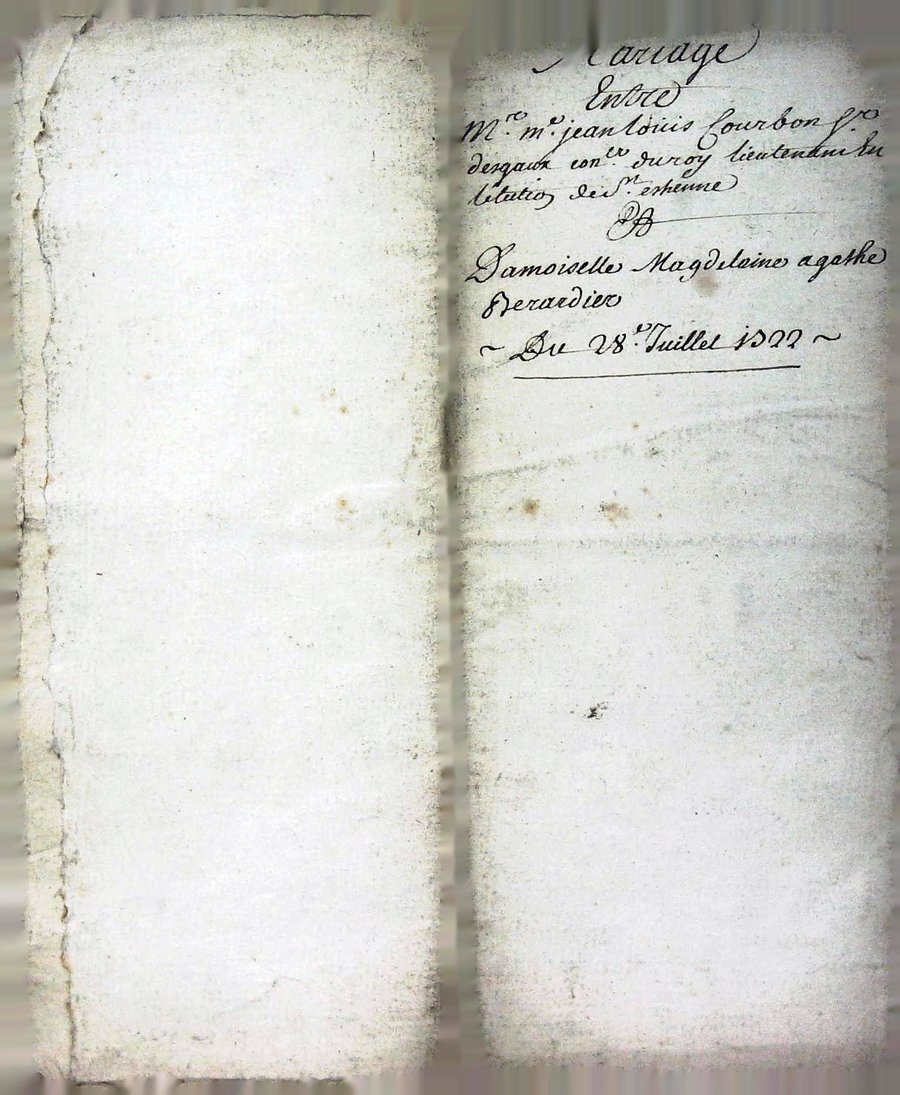 Mariage
Entre
Mre me jean louis Courbon Sr
desgaux coner du roy lieutenant En
lélection de St estienne
&
Damoiselle Magdelaine agathe
Berardier
~ Du 28e Juillet 1722 ~